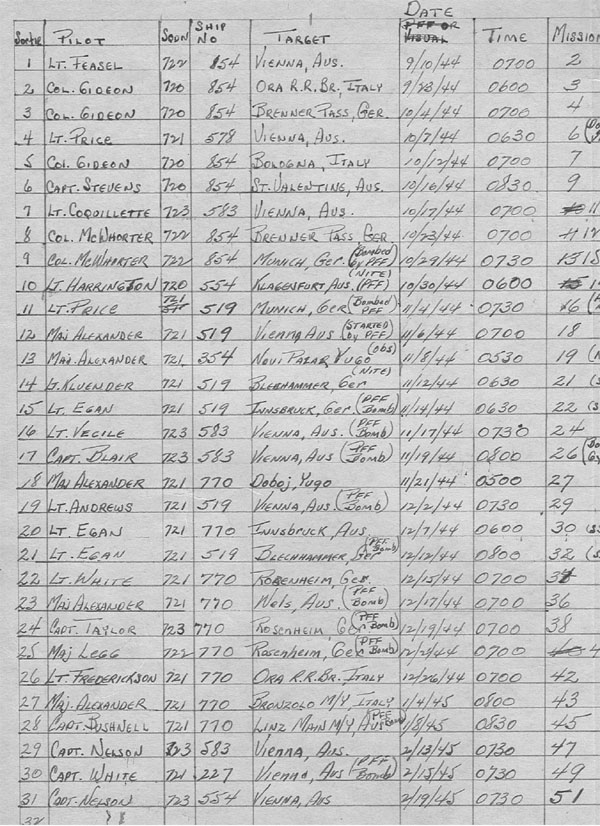 DATE
Sortie PILOT SQDN SHIP NO TARGET PFF OR VISUAL TIME MISSION
1 LT. FEASEL 722 854 VIENNA, AUS. 9/10/44 0700 2
2 COL. GIDEON 720 854 ORA R.R. BR. ITALY 9/23/44 0600 3
3 COL. GIDEON 720 854 BRENNER PASS, GER. 10/4/44 0700 4
4 LT. PRICE 721 578 VIENNA, AUS. 10/7/44 0630 6
5 COL. GIDEON 720 854 BOLOGNA, ITALY 10/12/44 0700 7
6 CAPT. STEVENS 720 854 ST. VALENTINE, AUS. 10/16/44 0830 9
7 LT. COQUILLETTE 723 583 VIENNA, AUS. 10/17/44 0700 11
8 COL. McWHORTER 722 854 BRENNER PASS GER. 10/23/44 0700 12
9 COL. McWHORTER 722 854 MUNICH, GER. (Bombed by PFF) 10/29/44 0730 13
10 LT. HARRINGTON 720 554 KLAGENFURT AUS. (NITE) (PFF) 10/30/44 0600
11 LT. PRICE 721 519 MUNICH, GER (Bombed PFF) 11/4/44 0730 16
12 MAJ ALEXANDER 721 519 VIENNA, AUS (STARTED by PFF) 11/6/44 0700 18
13 MAJ. ALEXANDER 721 354 NOVI PAZAR, YUGO (Obs) 11/8/44 0530 19
14 LT. KLUENDER 721 519 BLEBHAMMER, GER (NITE) 11/12/44 0630 21
15 LT. EGAN 721 519 INNSBRUCK, GER. (PFF Bomb) 11/14/44 0630 22
16 LT. VECILE 723 583 VIENNA, AUS. (PFF Bomb) 11/17/44 0730 24
17 CAPT. BLAIR 723 583 VIENNA, AUS (PFF Bomb) 11/19/44 0800 26
18 MAJ ALEXANDER 721 770 DOBOJ, YUGO 11/21/44 0500 27
19 LT. ANDREWS 721 519 VIENNA, AUS (PFF Bomb) 12/2/44 0730 29
20 LT. EGAN 721 770 INNSBRUCK, AUS. 12/7/44 0600 30
21 LT. EGAN 721 519 BLECHHAMMER, GER (PFF Bomb) 12/12/44 0800 32
22 LT. WHITE 721 770 ROBENHEIM, GER. 12/15/44 0700
23 MAJ ALEXANDER 721 770 WELS, AUS. (PFF Bomb) 12/17/44 0700 36
24 CAPT. TAYLOR 723 770 ROSENHEIM, GER (PFF Bomb) 12/19/44 0700 38
25 MAJ LEGG 722 770 ROSENHEIM, GER (PFF Bomb) 0700
26 LT. FREDERICKSON 721 770 ORA R.R. BR. ITALY 12/26/44 0700 42
27 MAJ. ALEXANDER 721 770 BRONZOLO M/Y ITALY 1/4/45 0800 43
28 CAPT. BUSHNELL 721 770 LINZ MAIN M/Y AUS (PFF Bomb) 1/8/45 0830 45
29 CAPT. NELSON 723 583 VIENNA, AUS. 2/13/45 0730 47
30 CAPT. WHITE 721 227 VIENNA, AUS (PFF Bomb) 2/15/45 0730 49
31 CAPT. NELSON 723 554 VIENNA, AUS 2/19/45 0730 51
32